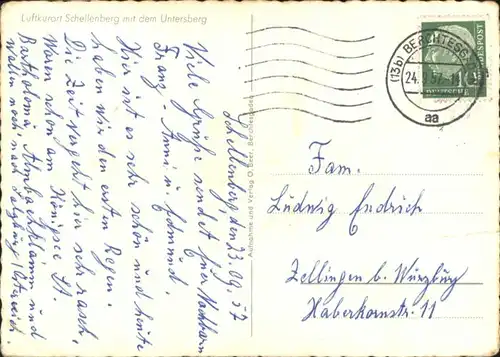 Luftkurort Schellenberg mit dem Untersberg
Schellenberg, den 23.09.57
Viele Grüße sendet Eure Nachbarn
Franz - Anni u. Edmund
Hier ist es sehr schön und heute
haben wir den ersten Regen.
Die Zeit vergeht hier sehr rasch,
Waren schon am Königsee St.
Bartholomä Almbachklamm und
wollen noch nach Salzburg Österreich
Aufnahme und Verlag O. Beer, Berchtesgaden
(13b) BERCHTESG
24. 9. 57
aa
DEUTSCHE
BUNDESPOST
Fam.
Ludwig Endrich
Zellingen b. Würzburg
Haberkornstr. 11